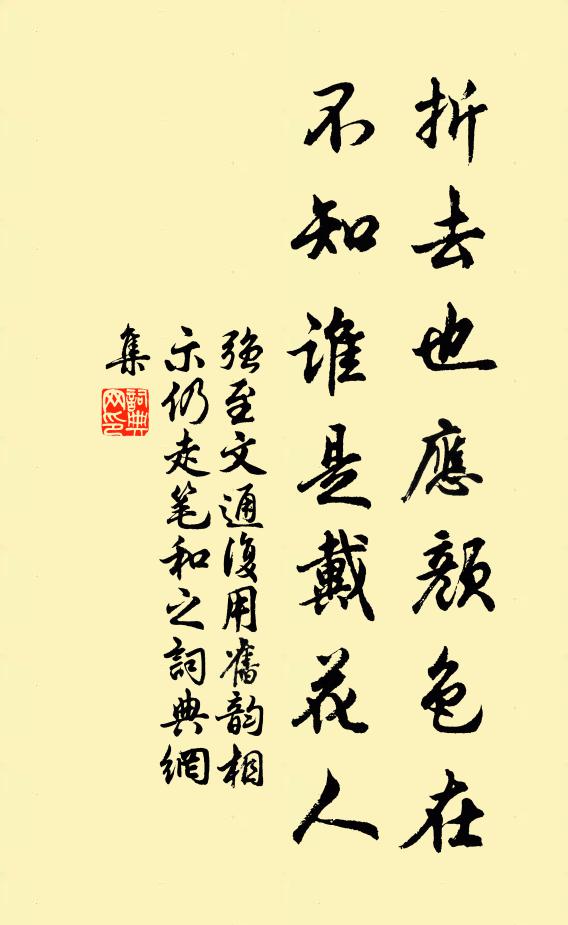 折去也應顔色在
不知誰是戴花人
强至文通復用舊韵相
示仍走笔和之詞典網
集
詞典
网印